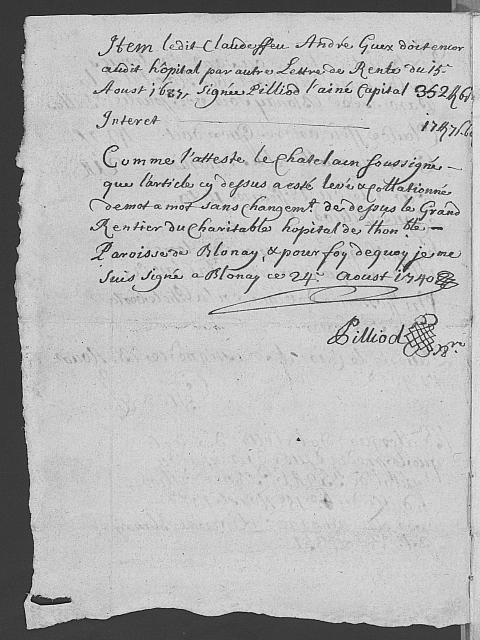 Item ledit Claude ffeu André Guex doit encor
audit hôpital par autre Lettre de Rente du 15.
Aoust 1687, Signée Pilliod l'ainé Capital 352
Interet
Comme l'atteste le Chatelain soussigné
que l'article cy dessus a esté levé & collationné
de mot a mot sans changemt. de dessus le Grand
Rentier du Charitable hôpital de l'honble.
Paroisse de Blonay, & pour foy dequoy je me
suis signé a Blonay ce 24. Aoust 1740
Pilliod